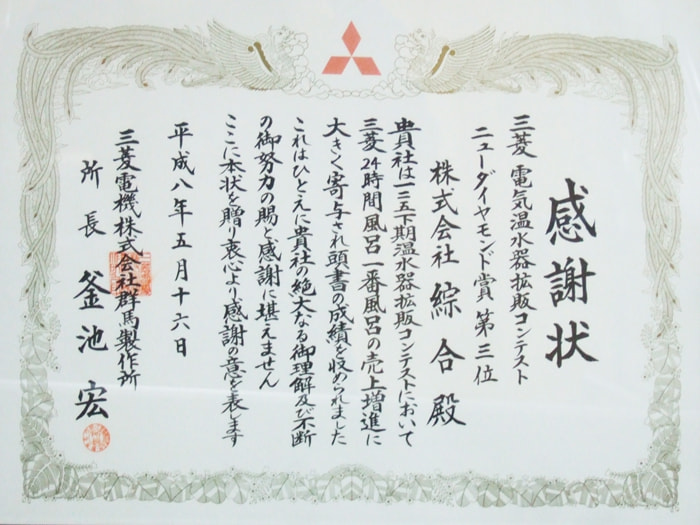 感謝状
三菱 電気温水器拡販コンテスト
ニューダイヤモンド賞 第三位
株式会社 綜合殿
貴社は一三五下期温水器拡販コンテストにおいて
三菱24時間風呂一番風呂の売上増進に
大きく寄与され頭書の成績を収められました
これはひとえに貴社の絶大なる御理解及び不断
の御努力の賜と感謝に堪えません
ここに本状を贈り衷心より感謝の意を表します
平成八年五月十六日
三菱電機株式会社群馬製作所
所長 釜池 宏